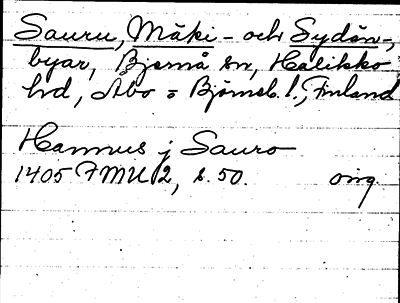 Sauru, Mäki- och Sydän-,
byar, Bjärnå sn, Halikko
hd, Åbo = Björneb. l., Finland
Hannus j Sauro
1405 FMU 2, s. 50. orig